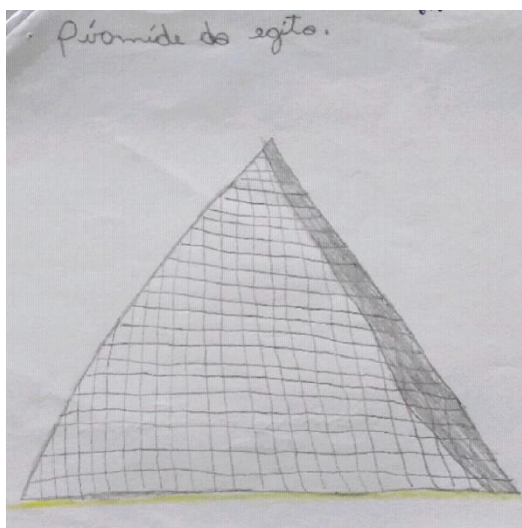 . Piramide do egito.